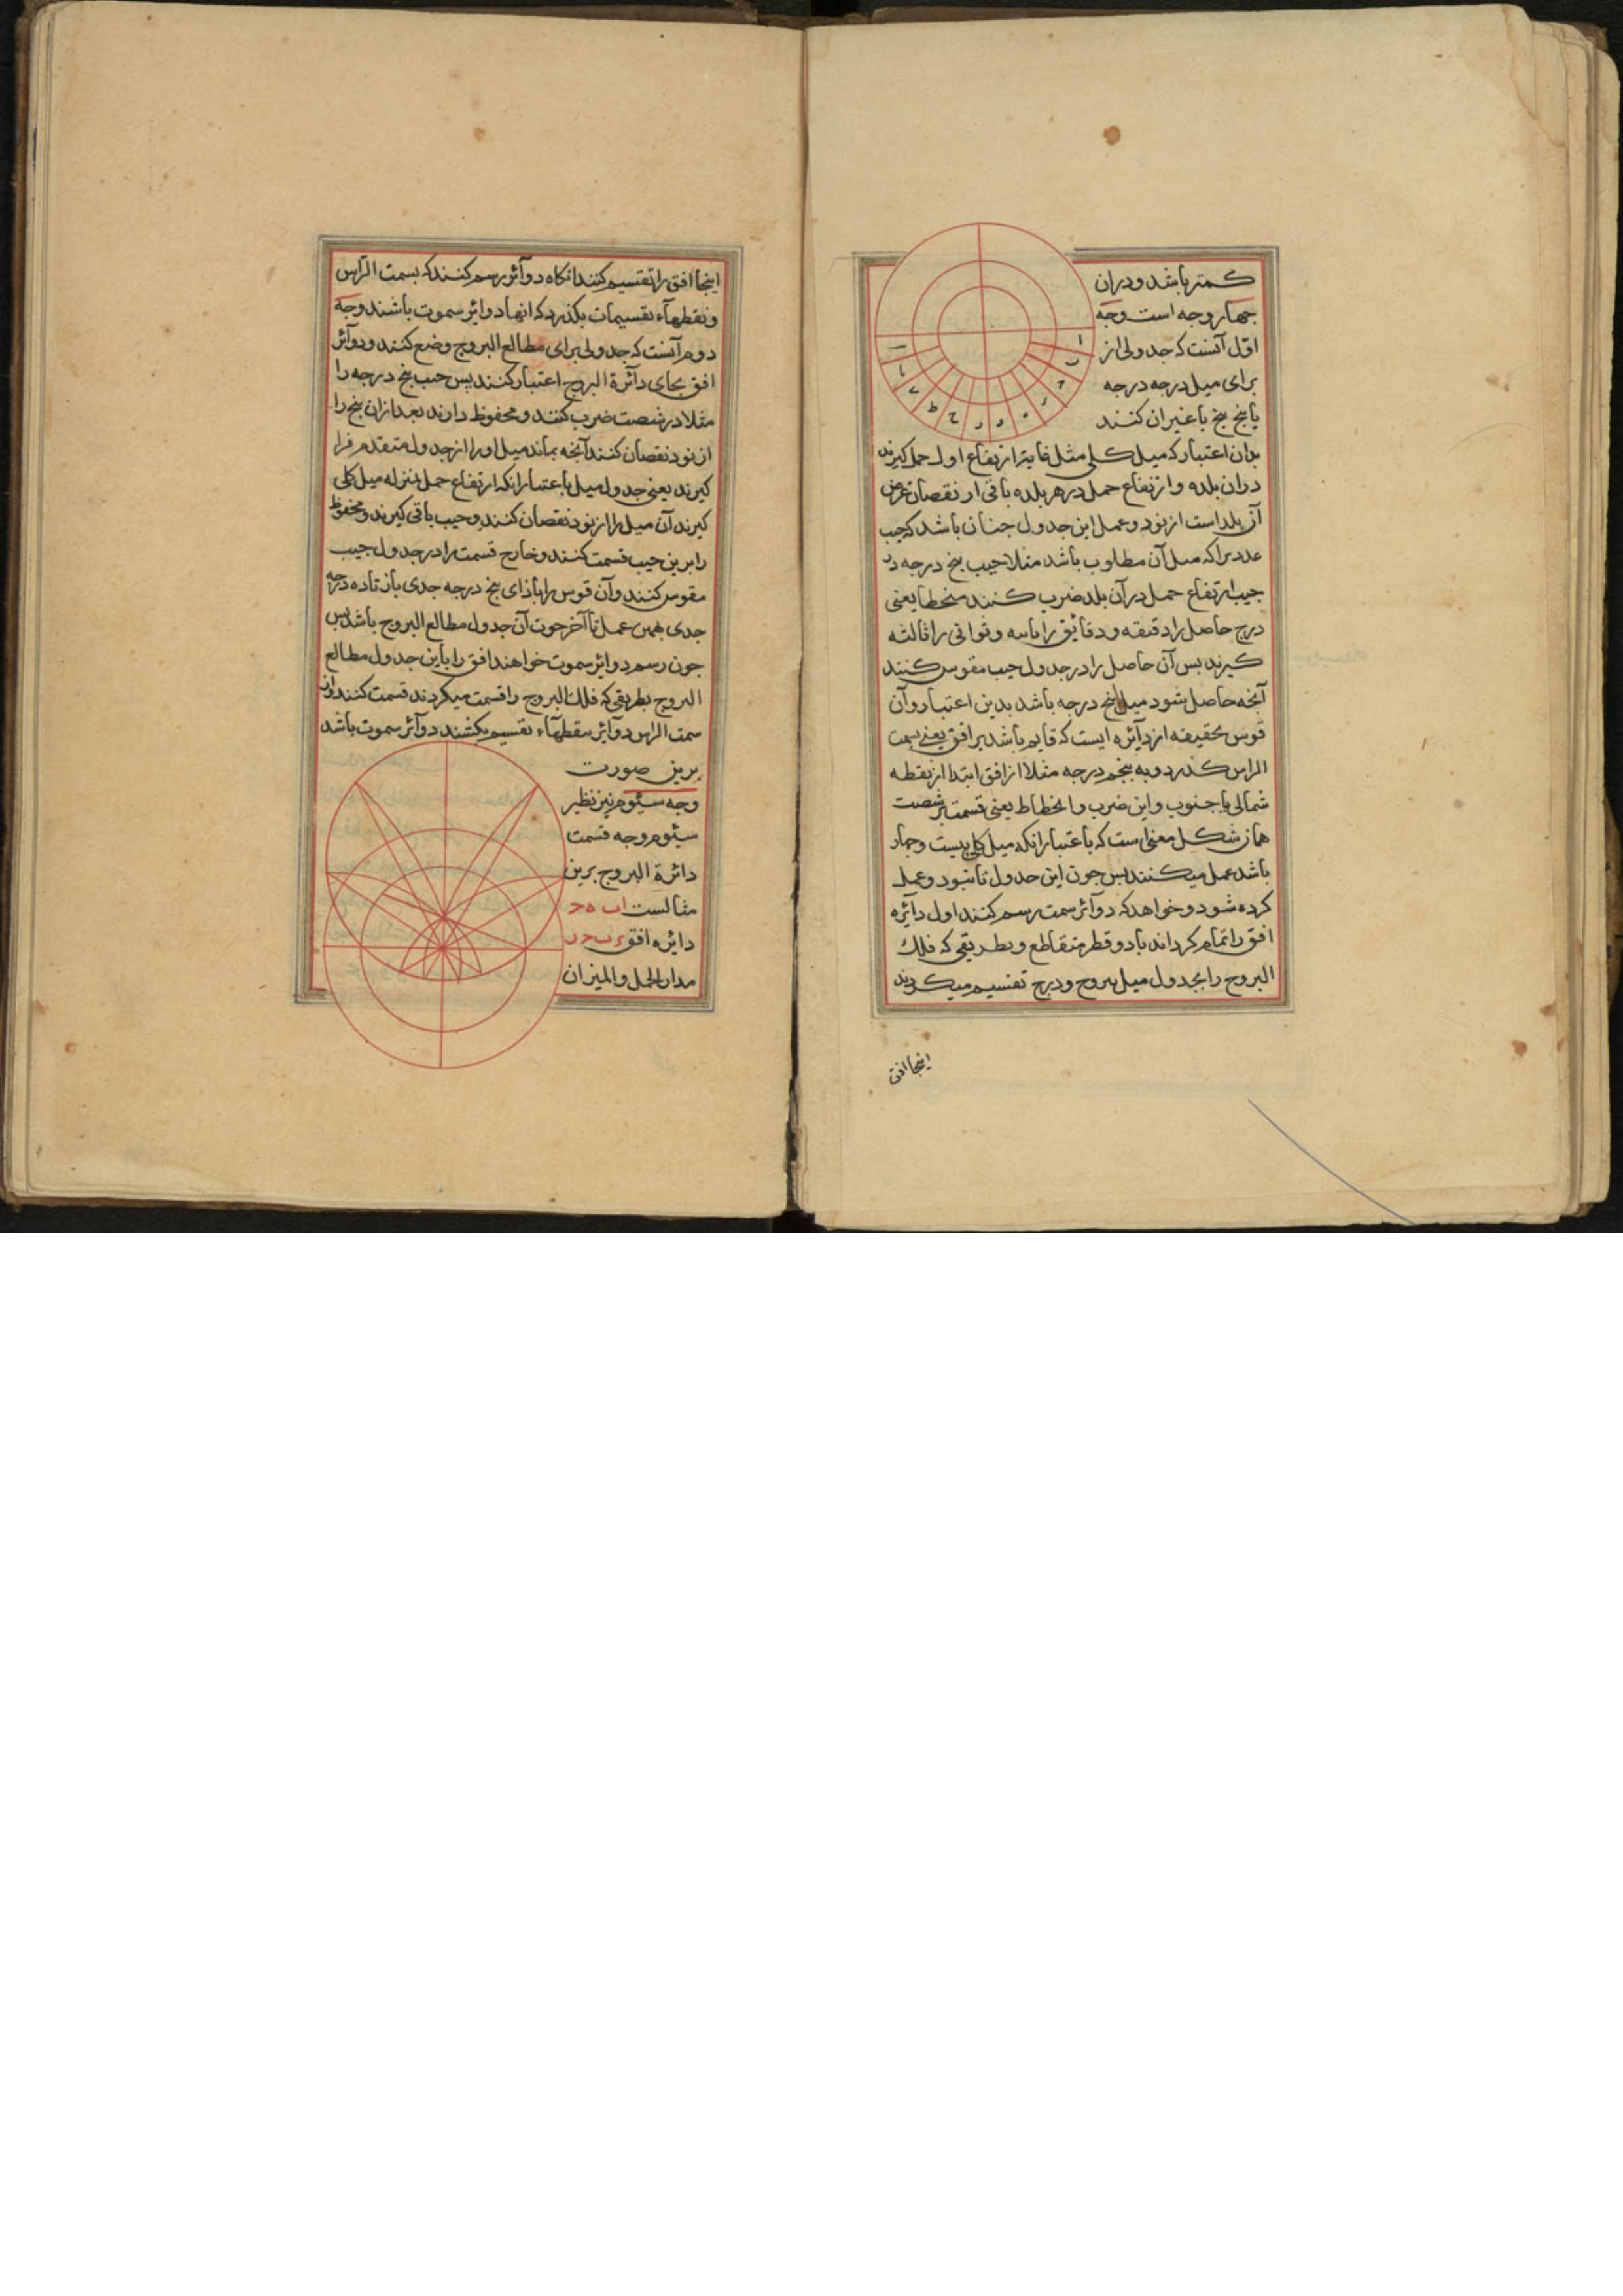 کمتر باشد و دران
چهار وجه است وجه
اوّل آنست که جدولی از
برای میل درجه درجه
یا پنج پنج یا غیر ان کنند
بدان اعتبار که میل کلی مثل غایة ارتفاع اول حمل کیرند
دران بلده و ارتفاع حمل در هر بلده باقی از نقصان عرض
آن بلد است از نود و عمل این جدول جنان باشد که جیب
عددیرا که میل آن مطلوب باشد مثلا جیب پنج درجه در
جیب ارتفاع حمل در آن بلد ضرب کنند منحطا یعنی
درج حاصل را دقیقه و دقایق را ثانیه و ثوانی را ثالثه
کیرند بس آن حاصل را در جدول جیب مقوس کنند
آنجه حاصل شود میل پنج درجه باشد بدین اعتبار و آن
قوس بحقیقه از دآئره ایست که قایم باشد بر افق یعنی بسمت
الراس کذرد و به پنجم درجه مثلا از افق ابتدا از نقطه
شمالی یا جنوب و این ضرب و انحطاط یعنی قسمت بر شصت
همان شکل مغنی است که باعتبار انکه میل کلی بیست و جهار
باشد عمل میکنند بس جون این جدول تا نبود و عمل
کرده شود و خواهد که دوآئر سمت رسم کنند اول دایره
افق را تمام کرداند با دو قطر متقاطع و بطریقی که فلک
البروج را بجدول میل بروج و درج تقسیم میکردند
اینجا افق
ا
ا
ح
ط
اینجا افق را تقسیم کنند انکاه دوآئر رسم کنند که بسمت الرّاس
و نقطهآء تقسیمات بکذرد که انها دوایر سموت باشند وجه
دوم آنست که جدولی برای مطالع البروج وضع کنند و دوآئر
افق بجای دآئرة البروج اعتبار کنند بس جیب پنج درجه را
مثلا در شصت ضرب کنند و محفوظ دارند بعد ازان پنج را
از نود نقصان کنند آنجه بماند میل او را از جدول متقدم فرا
کیرند یعنی جدول میل باعتبار انکه ارتفاع حمل بمنزله میل کلی
کیرند آن میل را از نود نقصان کنند و جیب باقی کیرند و محفوظ
را برین جیب قسمت کنند و خارج قسمت را در جدول جیب
مقوس کنند و آن قوس را بازای پنج درجه جدی باز تا ده درجه
جدی همین عمل تا آخر حوت آن جدول مطالع البروج باشد بس
جون رسم دوایر سموت خواهند افق را باین جدول مطالع
البروج بطریقی که فلک البروج را قسمت میکردند قسمت کنند و از
سمت الراس دوآئر بنقطهآء تقسیم بکشند دوآئر سموت باشد
برین صورت
وجه سیّوم نیز نظیر
سیّوم وجه قسمت
دائرة البروج برین
مثالست اب ه ح
دایره افق
مدار الحمل والمیزان